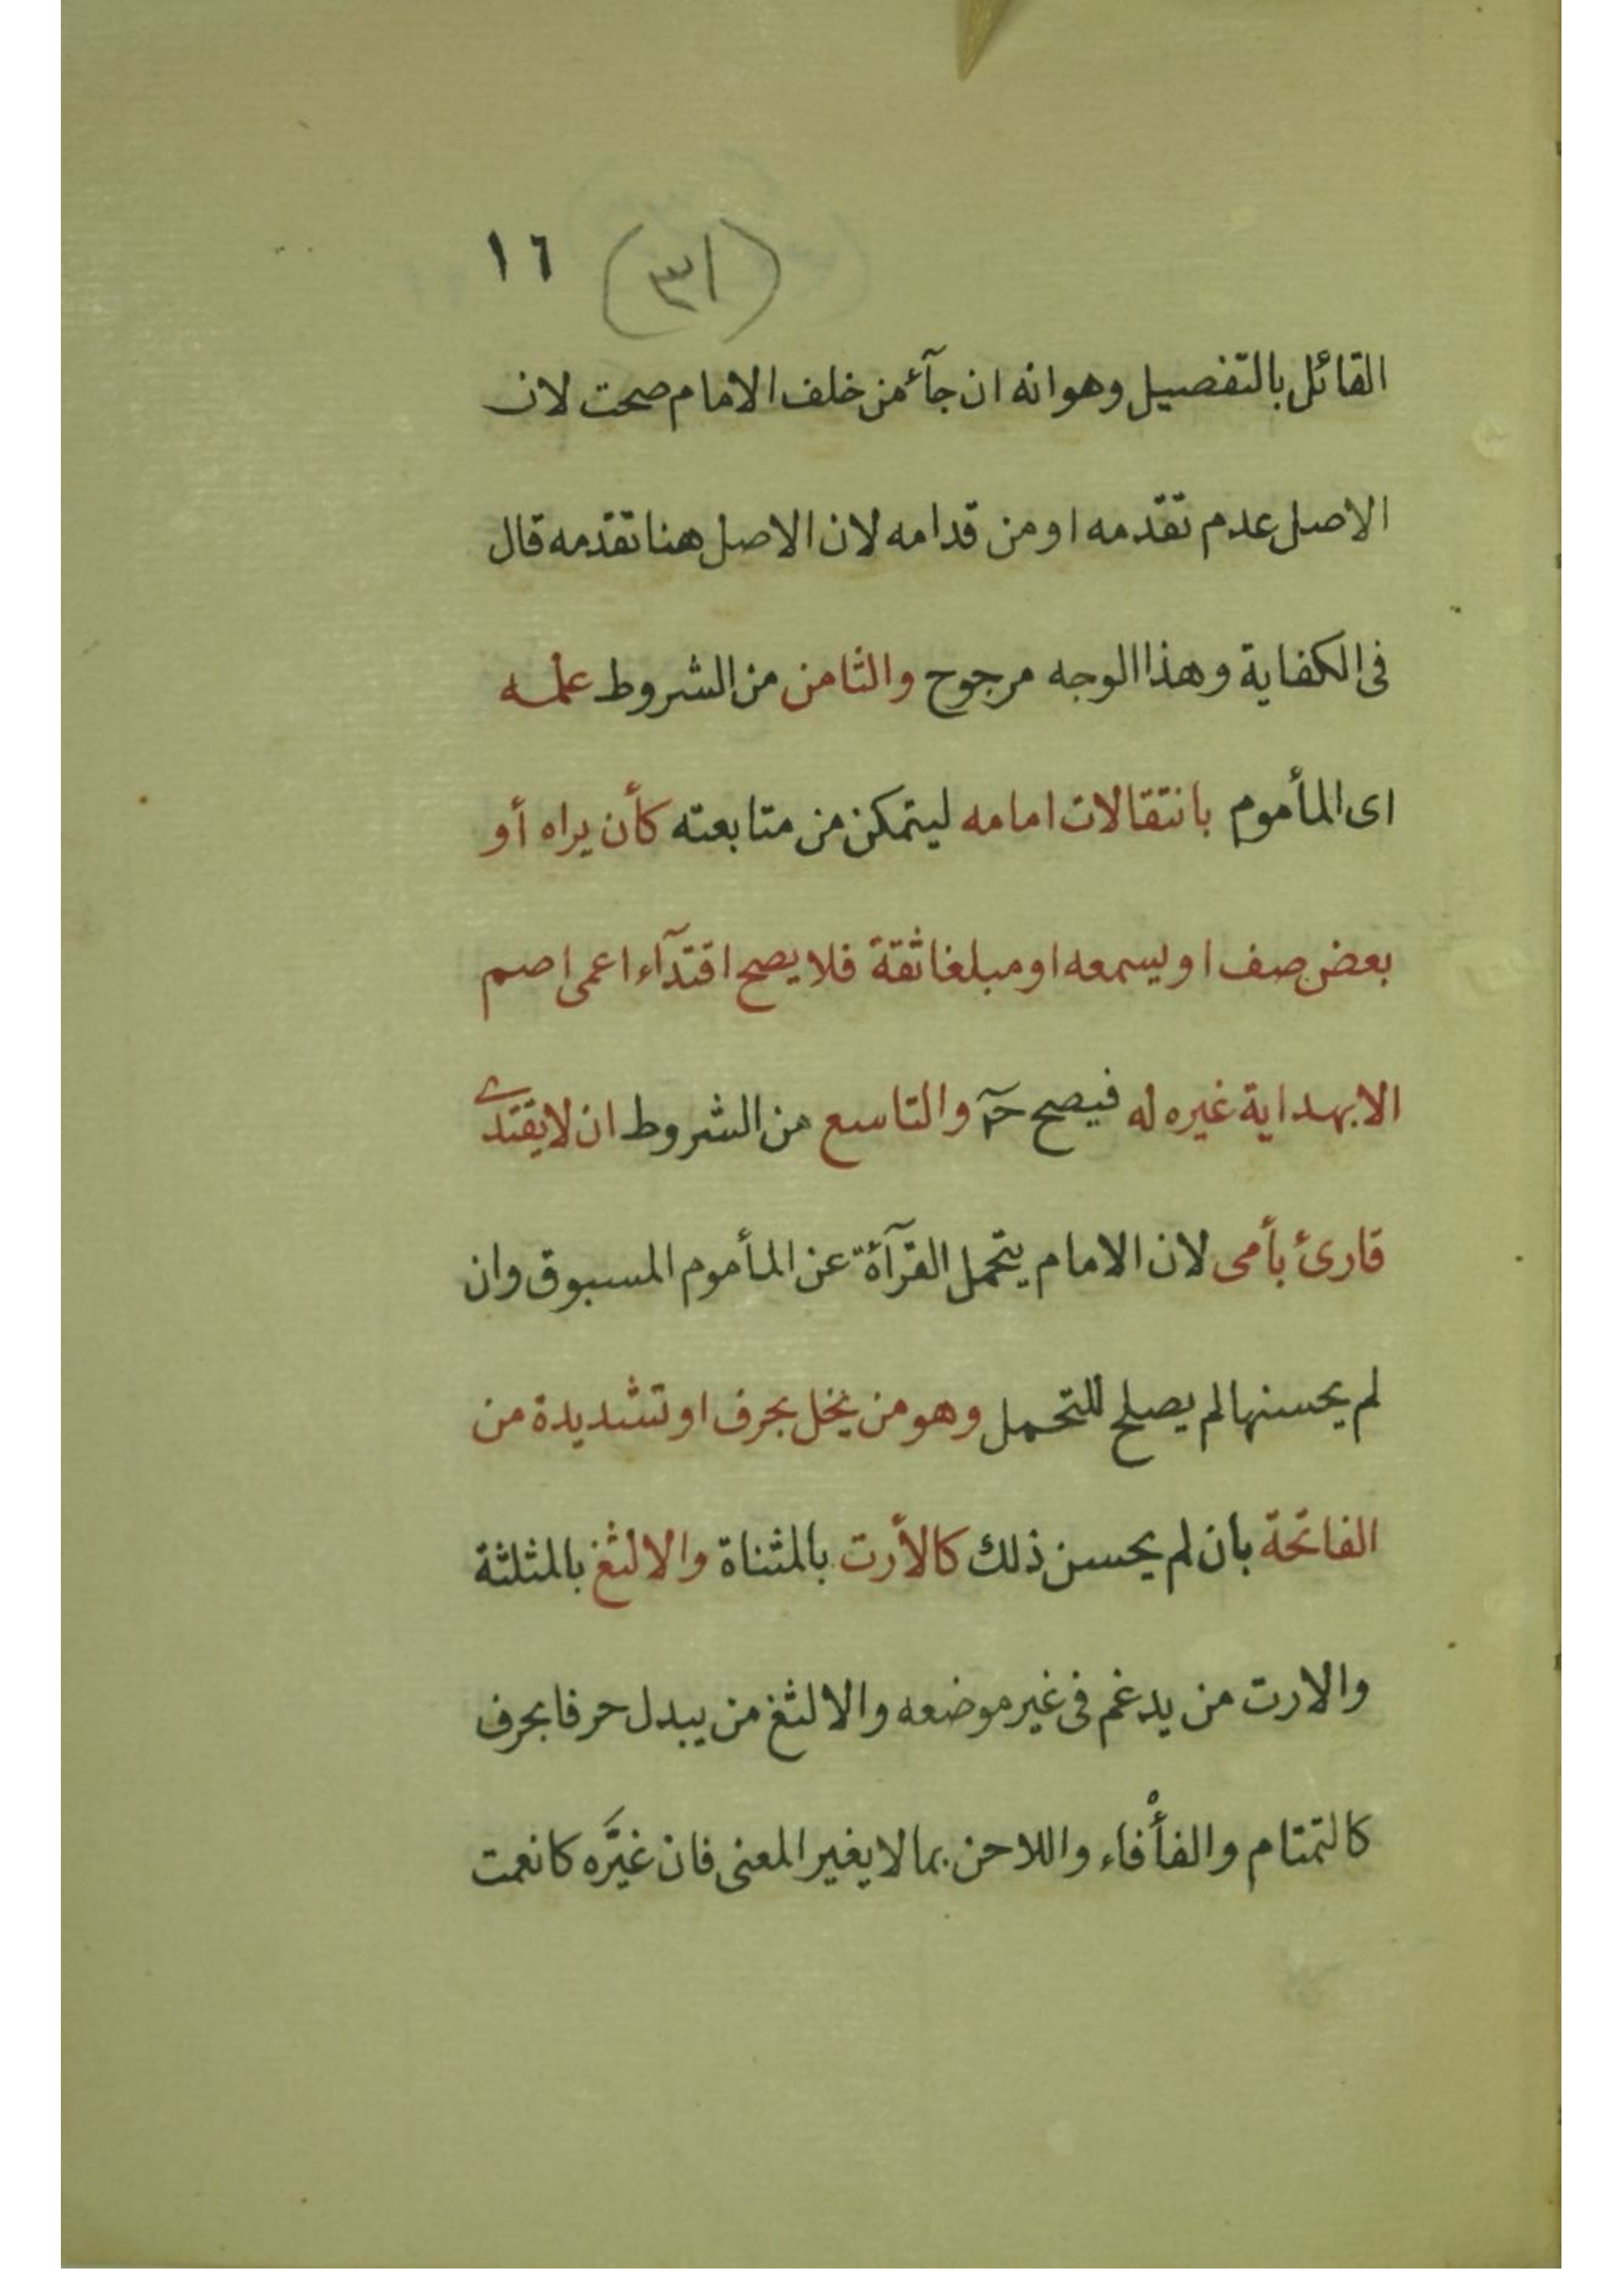 (٣١) ١٦
القائل بالتفصيل وهو انه ان جآء من خلف الامام صحت لان
الاصل عدم تقدمه او من قدامه لان الاصل هنا تقدمه قال
فى الكفاية وهذا الوجه مرجوح والثامن من الشروط علمه
اى المأموم بانتقالات امامه ليتمكن من متابعته كأن يراه أو
بعض صف او يسمعه او مبلغا ثقة فلا يصح اقتدآء اعمى اصم
الا بهداية غيره له فيصح حٓ والتاسع من الشروط ان لا يقتدى
قارئ بأمى لان الامام يتحمل القرآءة عن المأموم المسبوق وان
لم يحسنها لم يصلح للتحمل وهو من يخل بحرف او تشديدة من
الفاتحة بأن لم يحسن ذلك كالأرت بالمثناة والالثغ بالمثلثة
والارت من يدغم فى غير موضعه والالثغ من يبدل حرفا بحرف
كالتمتام والفأْفاء واللاحن بما لا يغير المعنى فان غيَّره كانعمت